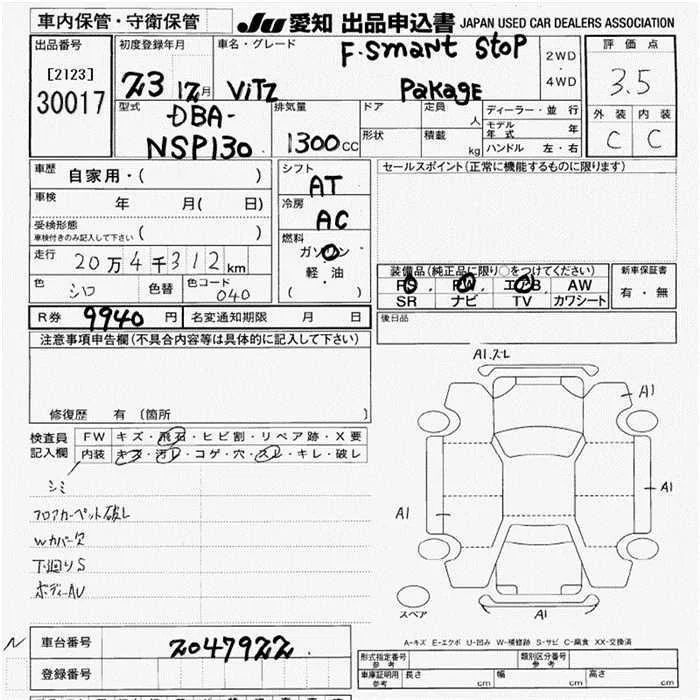 車内保管・守衛保管
JU 愛知 出品申込書 JAPAN USED CAR DEALERS ASSOCIATION
出品番号
[2123]
30017
初度登録年月
23 12月
車名・グレード
F. Smart Stop
ViTZ Pakage
2WD
・
4WD
評価点
3.5
外装 内装
C C
型式
DBA-
NSP130
排気量
1300cc
ドア
形状
定員 人
積載 kg
ディーラー・並行
モデル年式 年
ハンドル 左・右
車歴 自家用・( )
車検 年 月( 日)
受検形態
車検付きのみ記入して下さい ( )
走行 20万4千312km
色 シロ 色替 色コード 040
シフト
AT
冷房
AC
燃料
ガソリン
軽・油
( )
セールスポイント(正常に機能するものに限ります)
装備品(純正品に限り○をつけてください)
PS, PW, エアB, AW
SR ナビ TV カワシート
新車保証書
有・無
後日品
R券 9940円 名変通知期限 月 日
注意事項申告欄(不具合内容等は具体的に記入して下さい)
修復歴 有 〔箇所 〕
検査員
記入欄
FW キズ・飛石・ヒビ割・リペア跡・X要
内装 キズ・汚レ・コゲ・穴・スレ・キレ・破レ
シミ
フロアカーペット破レ
Wカバー欠
下廻りS
ボディーAU
A1.ズレ
A1
A1
A1
A1
スペア
A-キズ E-エクボ U-凹み W-補修跡 S-サビ C-腐食 XX-交換済
N 車台番号 2047922
登録番号
形式指定番号
参考
類別区分番号
参考
車庫証明用
参考
長さ cm 幅 cm 高さ cm